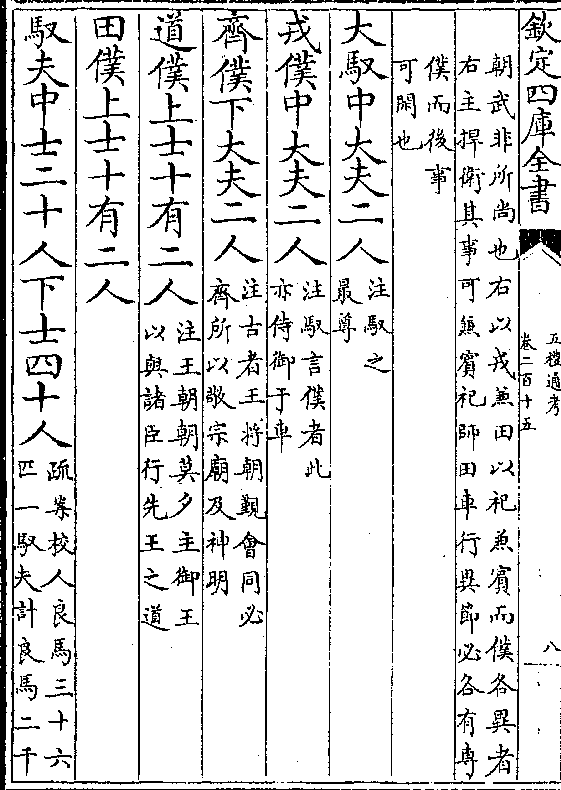 欽定四庫全書
五禮通考
卷二百十五
八
朝武非所尚也右以戎兼田以祀兼賓而僕各異者
右主捍衛其事可兼賓祀師田車行異節必各有專
僕而後事
可閑也
大馭中大夫二人
注馭之
最尊
戎僕中大夫二人
注馭言僕者此
亦侍御于車
齊僕下大夫二人
注古者王將朝覲會同必
齊所以敬宗廟及神明
道僕上士十有二人
注王朝朝莫夕主御王
以與諸臣行先王之道
田僕上士十有二人
馭夫中士二十人下士四十人
疏案校人良馬三十六
匹一馭夫計良馬二千